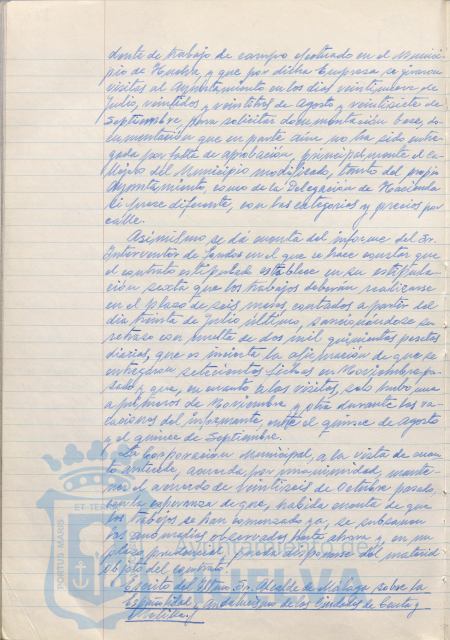 dente de trabajo de campo efectuado en el Munici-
pio de Huelva y que por dicha Empresa se giraron
visitas al Ayuntamiento en los días veintinueve de
Julio, veintidos y veintitres de Agosto y veintisiete de
Septiembre para solicitar documentación base, do-
cumentación que en parte aún no ha sido entre-
gada por falta de aprobación, principalmente el ca-
llejero del Municipio modificado, tanto del propio
Ayuntamiento, como de la Delegación de Hacienda
si fuese diferente, con las categorías y precios por
calle.
Asimismo se dá cuenta del informe del Sr.
Interventor de Fondos en el que se hace constar que
el contrato estipulado establece en su estipula-
ción sexta que los trabajos deberán realizarse
en el plazo de seis meses, contados a partir del
día treinta de Julio último, sancionándose su
retraso con multa de dos mil quinientas pesetas
diarias, que es incierta la afirmación de que se
entregaran setecientas fichas en Noviembre pa-
sado y que, en cuanto a las visitas, solo hubo una
a primeros de Noviembre y otra durante las va-
caciones del informante, entre el quince de Agosto
y el quince de Septiembre.
La Corporación Municipal, a la vista de cuan-
to antecede, acuerda por unanimidad, mante-
ner el acuerdo de veintiseis de Octubre pasado,
con la esperanza de que, habida cuenta de que
los trabajos se han comenzado ya, se subsanen
las anomalías observadas hasta ahora y, en un
plazo prudencial, pueda disponerse del material
objeto del contrato.
Escrito del Iltmo. Sr. Alcalde de Málaga sobre la
españolidad y andalucismo de las Ciudades de Ceuta y
Melilla./
PORTUS MARIS
ET TERRAE
Ayuntamiento de
HUELVA